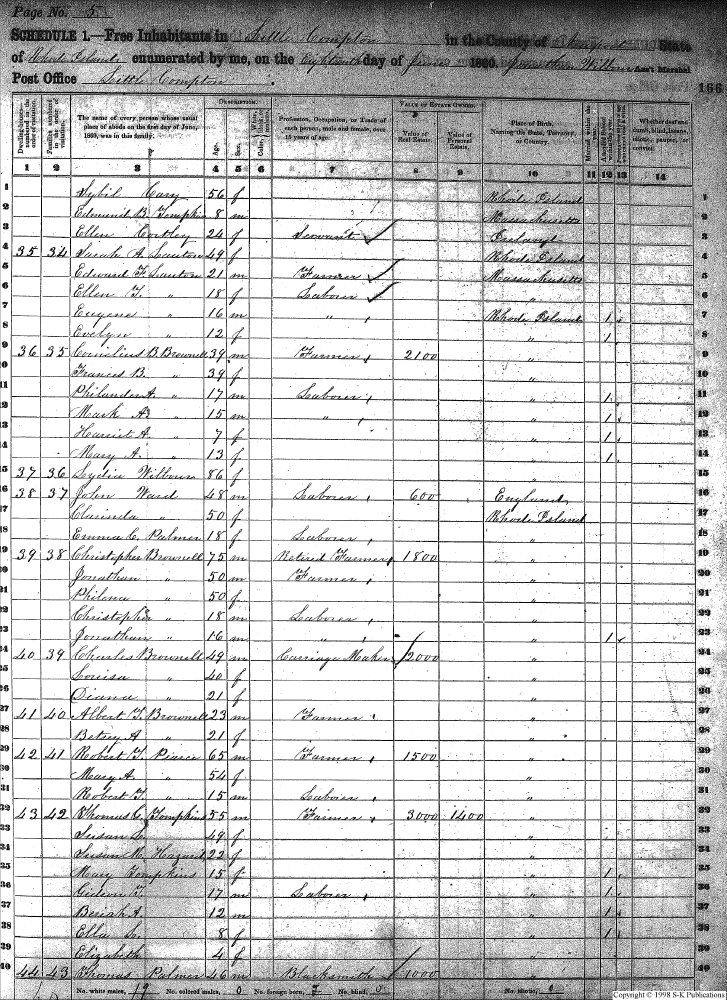 Page No. 5
SCHEDULE 1.—Free Inhabitants in Little Compton in the County of Newport State
of Rhode Island enumerated by me, on the Eighteenth day of June 1860. Jonathan Wilbour Ass't Marshal
Post Office Little Compton 166
Dwelling-houses numbered in the order of visitation. Families numbered in the order of visitation. The name of every person whose usual place of abode on the first day of June, 1860, was in this family. DESCRIPTION. Age. Sex. Color, Profession, Occupation, or Trade of each person, male and female, over 15 years of age. VALUE OF ESTATE OWNED. Value of Real Estate. Value of Personal Estate. Place of Birth, Naming the State, Territory, or Country. Married within the year. Whether deaf and dumb, blind, insane, idiotic, pauper, or convict.
1 2 3 4 5 6 7 8 9 10 11 12 13 14
1 Sybil Cary 56 f Rhode Island 1
2 Edmund B. Tompkins 8 m Massachusetts 2
3 Ellen 24 f Servant Ireland 3
4 35 34 Sarah A. 49 f Rhode Island 4
5 Edward F. 21 m Farmer Massachusetts 5
6 Ellen T. " 18 f Laborer " 6
7 Eugene " 16 m " Rhode Island 1 7
8 Evelyn " 12 f " 1 8
9 36 35 Cornelius B. Brownell 39 m Farmer 2100 " 9
10 Frances B. " 39 f " 10
11 Philander A. " 17 m Laborer " 1 11
12 Mark A. " 15 m " " 1 12
13 Harriet A. " 7 f " 1 13
14 Mary A. " 13 f " 1 14
15 37 36 Lydia Wilbour 86 f " 15
16 38 37 John Ward 48 m Laborer 600 England 16
17 Clarinda 50 f Rhode Island 17
18 Emma C. Palmer 18 f Laborer " 18
19 39 38 Christopher Brownell 75 m Retired Farmer 1800 " 19
20 Jonathan " 50 m Farmer " 20
21 Philena " 50 f " 21
22 Christopher " 18 m Laborer " 22
23 Jonathan " 16 m " " 1 23
24 40 39 Charles Brownell 49 m Carriage Maker 2000 " 24
25 Louisa " 40 f " 25
26 Diana " 21 f " 26
27 41 40 Albert T. Brownell 23 m Farmer " 27
28 Betsey A " 21 f " 28
29 42 41 Robert T. Pearce 65 m Farmer 1500 " 29
30 Mary A. " 54 f " 30
31 Robert T. " 15 m Laborer " 31
32 43 42 Thomas C. Tompkins 55 m Farmer 3000 1400 " 32
33 Susan C. 49 f " 33
34 Susan M. Hazard 22 f " 34
35 Mary Tompkins 15 f " 1 35
36 Gideon T. 17 m Laborer " 1 36
37 Beriah A. 12 m " 1 37
38 Ella S. 8 f " 1 38
39 Elizabeth 4 f " 39
40 44 43 Thomas Palmer 46 m Blacksmith 1000 " 40
No. white males, 19 No. colored males, 0 No. foreign born, 2 No. blind, 0 No. idiotic, 0
Copyright © 1998 S-K Publications